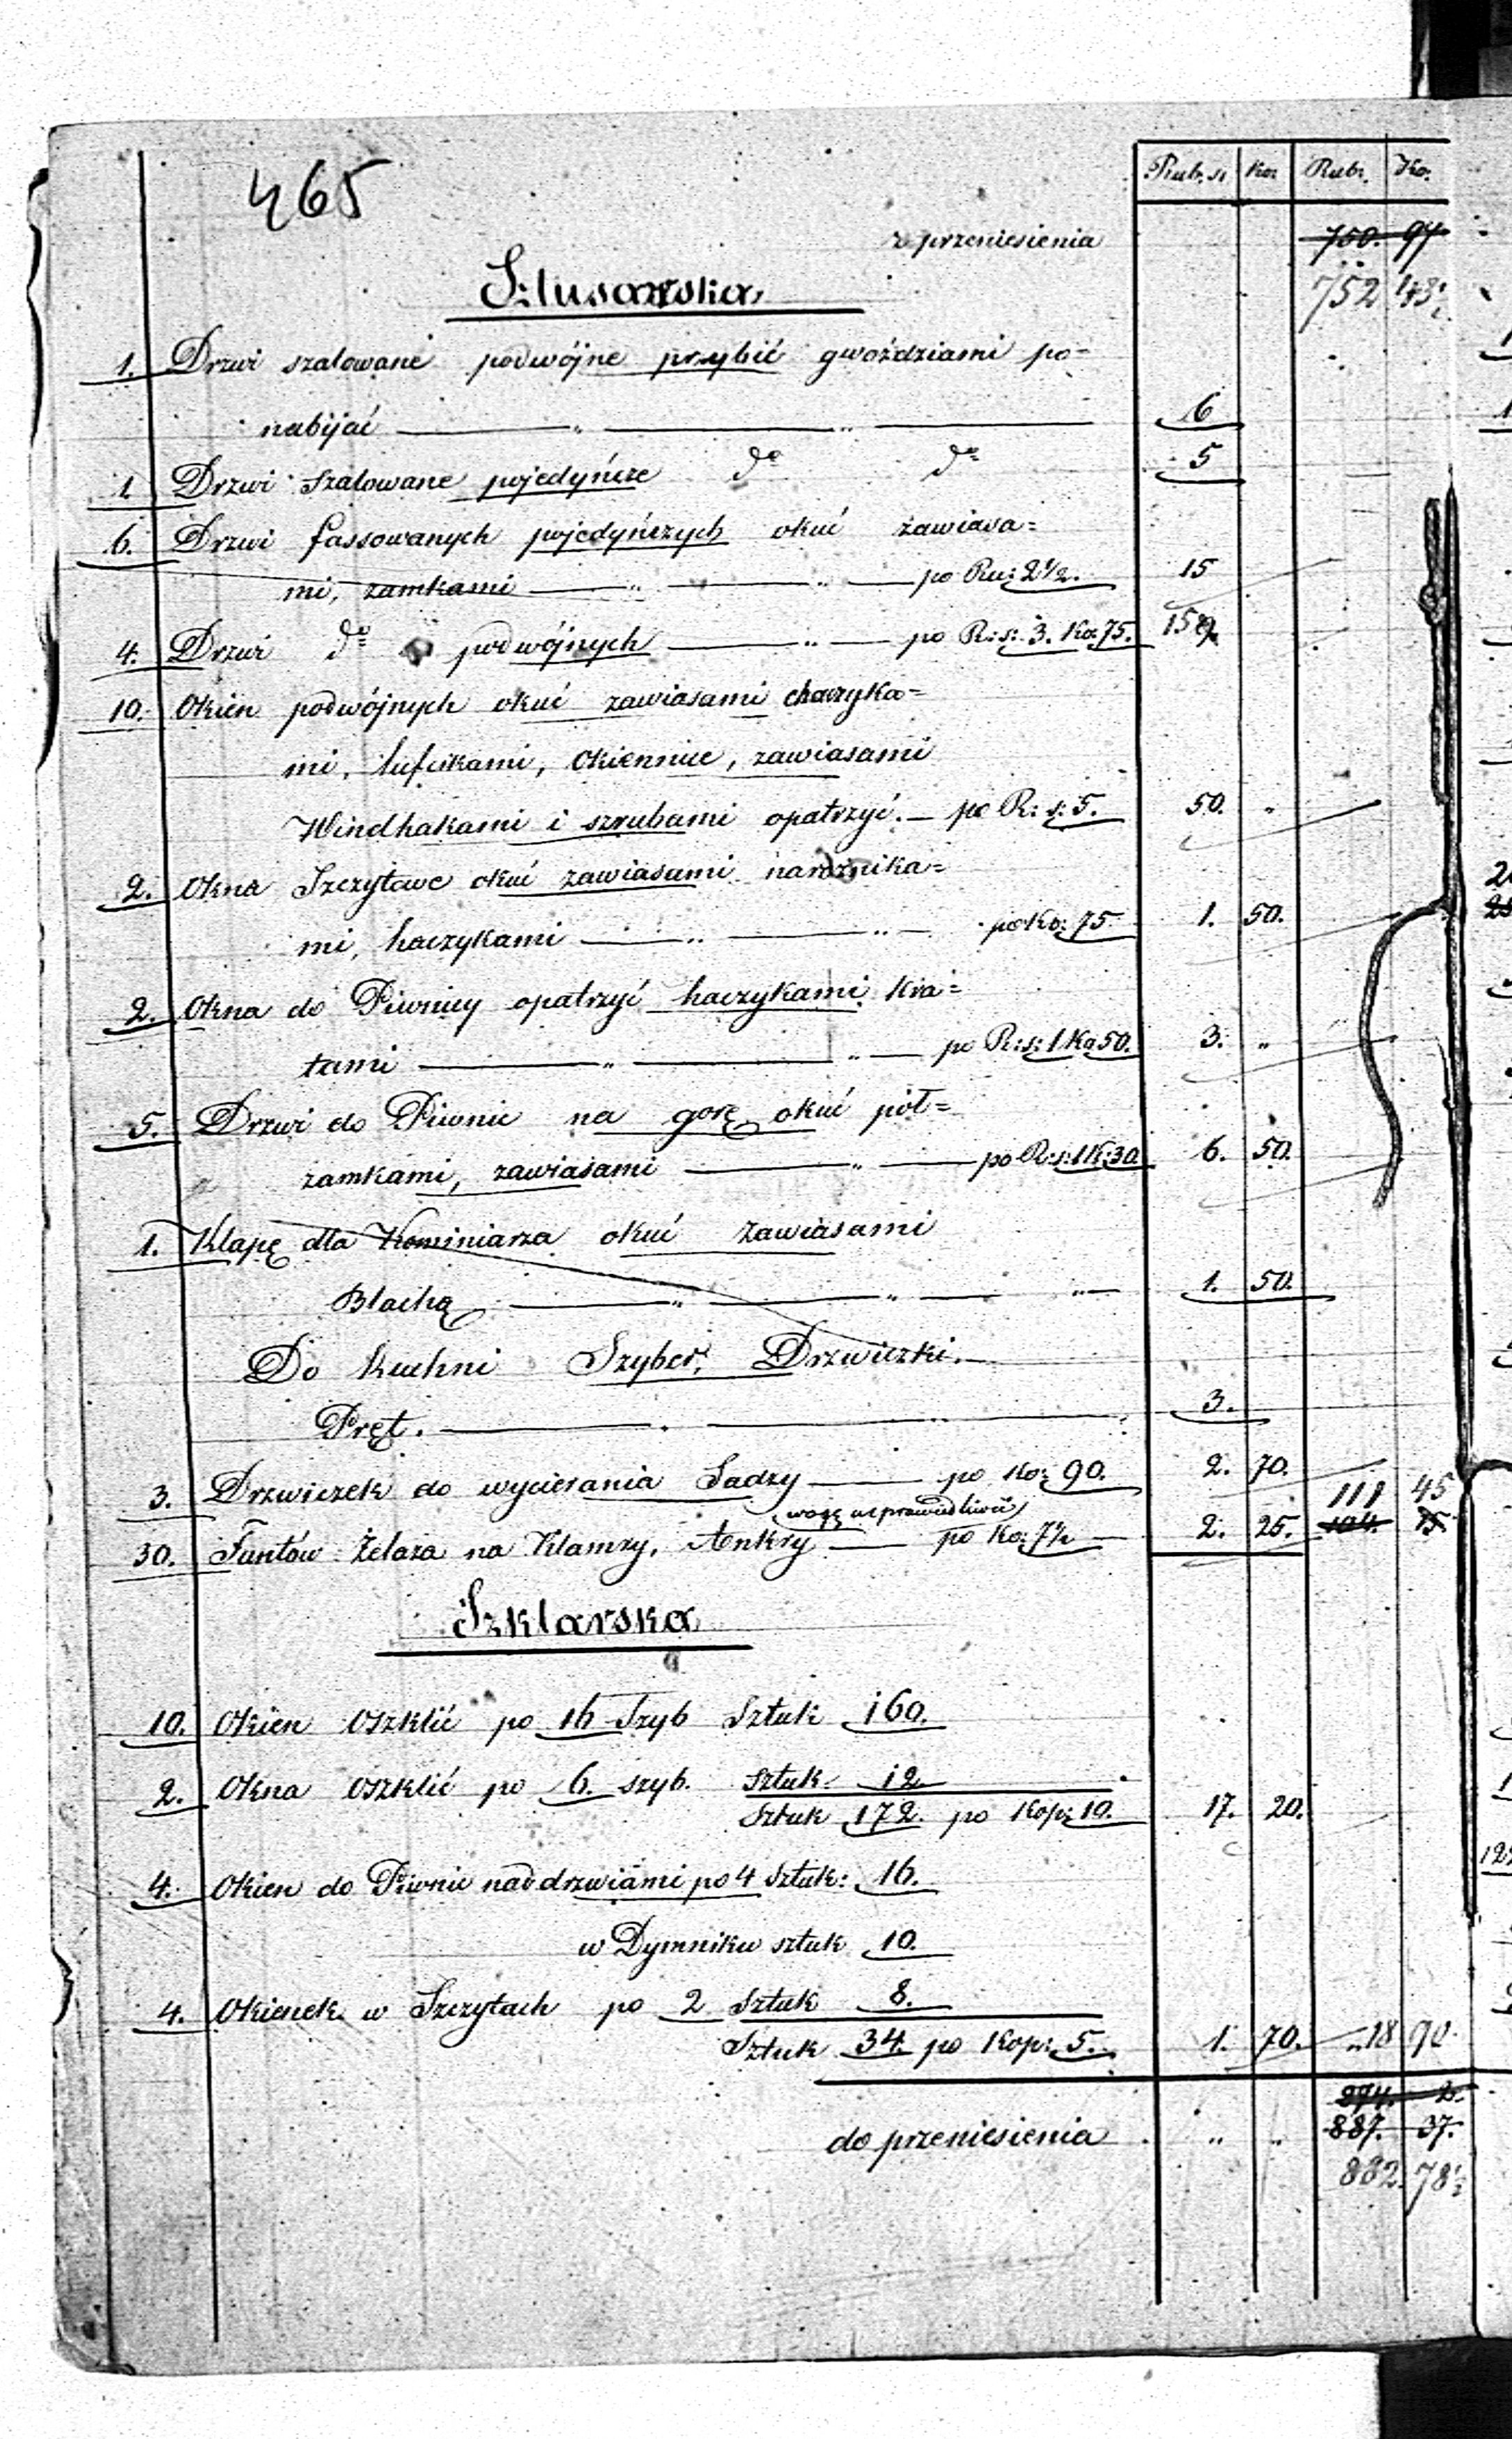 465
Rub. sr. Ko: Rub. Ko.
z przeniesienia 750. 97
Szlusarska 752 43½
1. Drzwi szalowane podwójne przybić gwoździami po=
nabijać — „ — „ — 6
1 Drzwi szalowane pojedyńcze do do 5
6. Drzwi fassowanych pojedyńczych okuć zawiasa=
mi, zamkami — „ — „ — po Ru: 2½. 15
4. Drzwi do podwójnych — „ — po R: s: 3. Ko: 75. 15
10. Okien podwójnych okuć zawiasami haczyka=
mi, lufcikami, Okiennice, zawiasami
Windhakami i szrubami opatrzyć. — po R: s: 5. 50. „
2. Okna Szczytowe okuć zawiasami narożnika=
mi, haczykami — „ — „ — po Ko: 75. 1. 50.
2. Okna do Piwnicy opatrzyć haczykami kra=
tami — „ — „ — po R: s: 1 Ko 50. 3. „
5. Drzwi do Piwnic na gorę okuć pół=
zamkami, zawiasami — „ — po R: s: 1 K: 30. 6. 50.
1. Klapę dla Kominiarza okuć zawiasami
Blachą — „ — „ — „ — 1. 50.
Do kuchni Szyber, Drzwiczki.—
Pręt. — „ — „ — 3.
3. Drzwiczek do wycierania Sadzy — po Ko: 90. 2. 70. 111 45
(wagę usprawiedliwić)
30. Funtów Żelaza na Klamry, Ankry — po Ko: 7½ — 2. 25. 104. 15
Szklarska
10. Okien oszklić po 16 Szyb Sztuk 160.
2. Okna oszklić po 6. szyb. Sztuk 12
Sztuk 172. po Kop: 10. 17. 20.
4. Okien do Piwnic nad drzwiami po 4 Sztuk: 16.
w Dymniku sztuk 10.
4. Okienek w Szczytach po 2 Sztuk 8.
Sztuk 34. po Kop: 5. 1. 70. „18 90
874. 2.
do przeniesienia „ „ 887. 37.
882. 78½